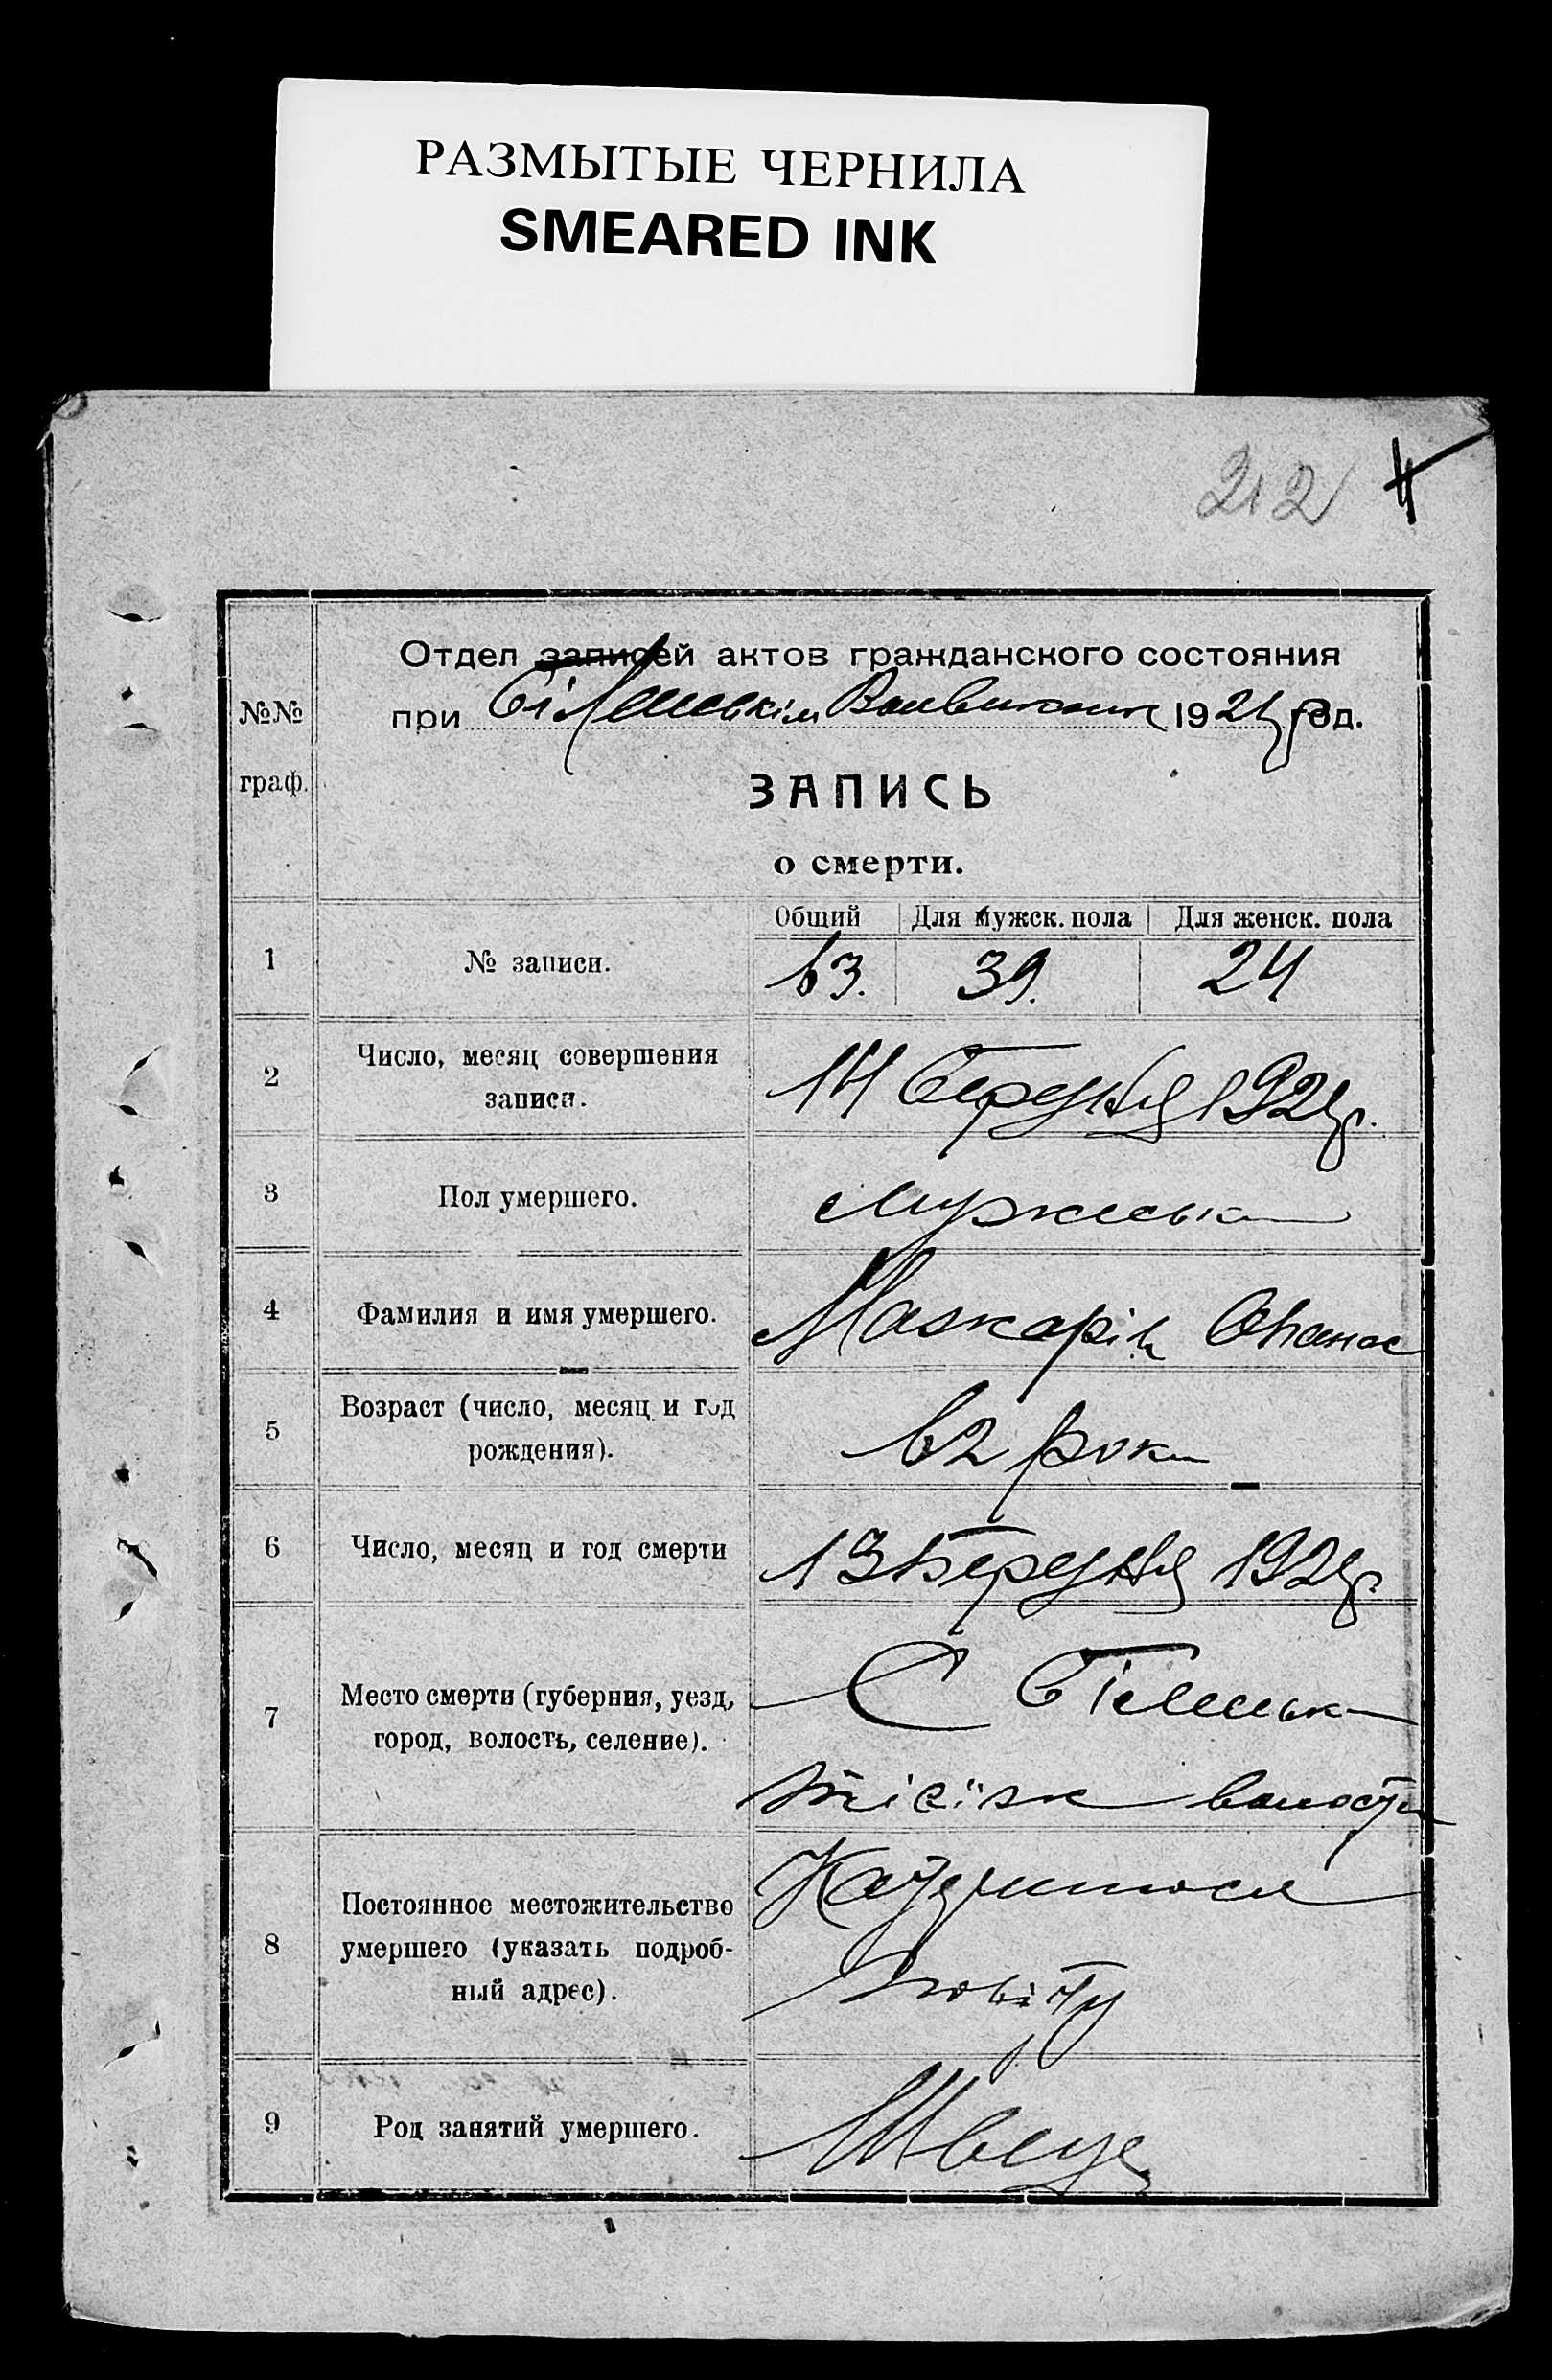 РАЗМЫТЫЕ ЧЕРНИЛА
SMEARED INK
212
Отдел записей актов гражданского состояния
№№ при Волвиконк 1921 год.
граф.
ЗАПИСЬ
о смерти.
Общий Для мужск. пола Для женск. пола
1 № записи. 63. 39. 24
2 Число, месяц совершения
записи. 14 Березня 1921 р.
3 Пол умершего. мужеська
4 Фамилия и имя умершего. Опанас
5 Возраст (число, месяц и год
рождения). 62 роки
6 Число, месяц и год смерти 13 Березня 1921 р.
7 Место смерти (губерния, уезд,
город, волость, селение). С
волости
8 Постоянное местожительство
умершего (указать подроб-
ный адрес). Повіту
9 Род занятий умершего. Швець